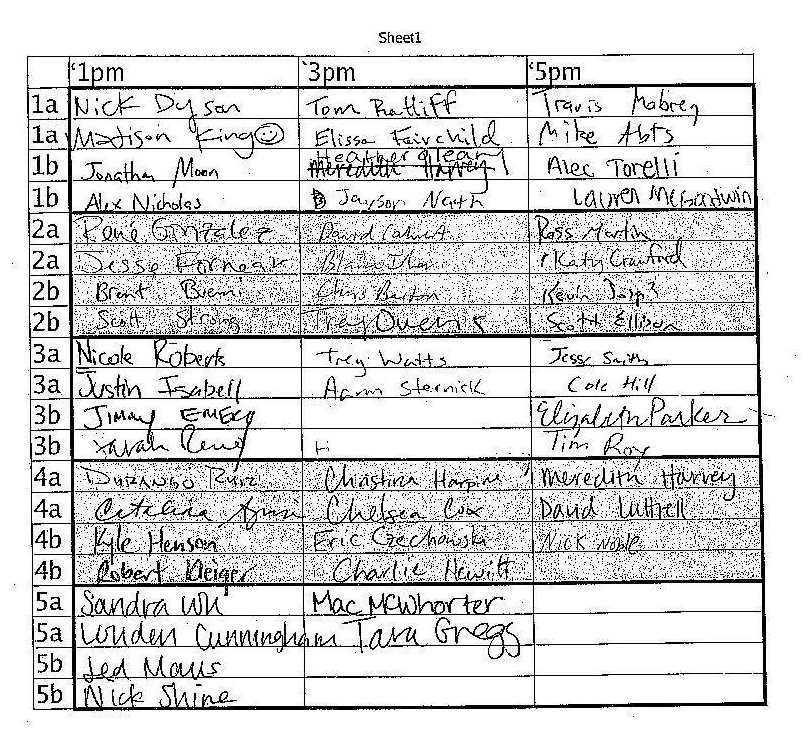 Sheet1
'1pm '3pm '5pm
1a Nick Dyson Tom Ratliff Travis Mabrey
1a Madison King☺ Elissa Fairchild Mike Abts
1b Jonathan Moon Heather Meredith Harvey Alec Torelli
1b Alex Nicholas Jayson Lauren McGoodwin
2a René Gonzalez David Ross Martin
2a Jesse Katy Crawford
2b Brent Kevin
2b Scott Strong Trey Owens Scott Ellison
3a Nicole Roberts Trey Watts Jesse Smith
3a Justin Isabell Aaron Sternick Cole Hill
3b Jimmy Emery Elizabeth Parker
3b Sarah Tim Roy
4a Durango Ruiz Christina Meredith Harvey
4a Catalina Chelsea Cox David Luttrell
4b Kyle Henson Eric Czechowski Nick Noble
4b Robert Kleiger Charlie Hewitt
5a Sandra Mac McWhorter
5a Louden Cunningham Tara Gregg
5b Jed Maus
5b Nick Shine